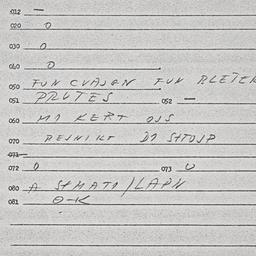 012 —
020 0
030 0
040 0
050 FUN CVAJGN FUN BLETER
051 PRUTES 052 —
060 MI KERT OJS
070 BEJNIKT DI SHTOJP
071 —
072 0 073 0
080 A SHMATI/LAPN
081 0-K